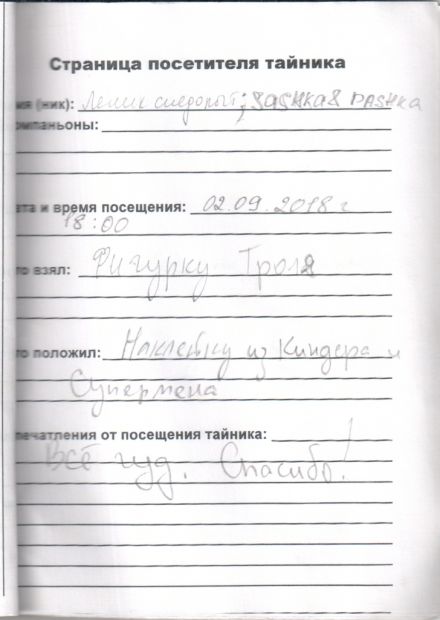 Страница посетителя тайника
мя (ник): Лелик следопыт; SASHka & PASHka
омпаньоны:
ата и время посещения: 02.09.2018 г
18:00
то взял: Фигурку Троля
то положил: Наклейку из Киндера и
Супермена
печатления от посещения тайника:
Всё гуд. Спасибо!